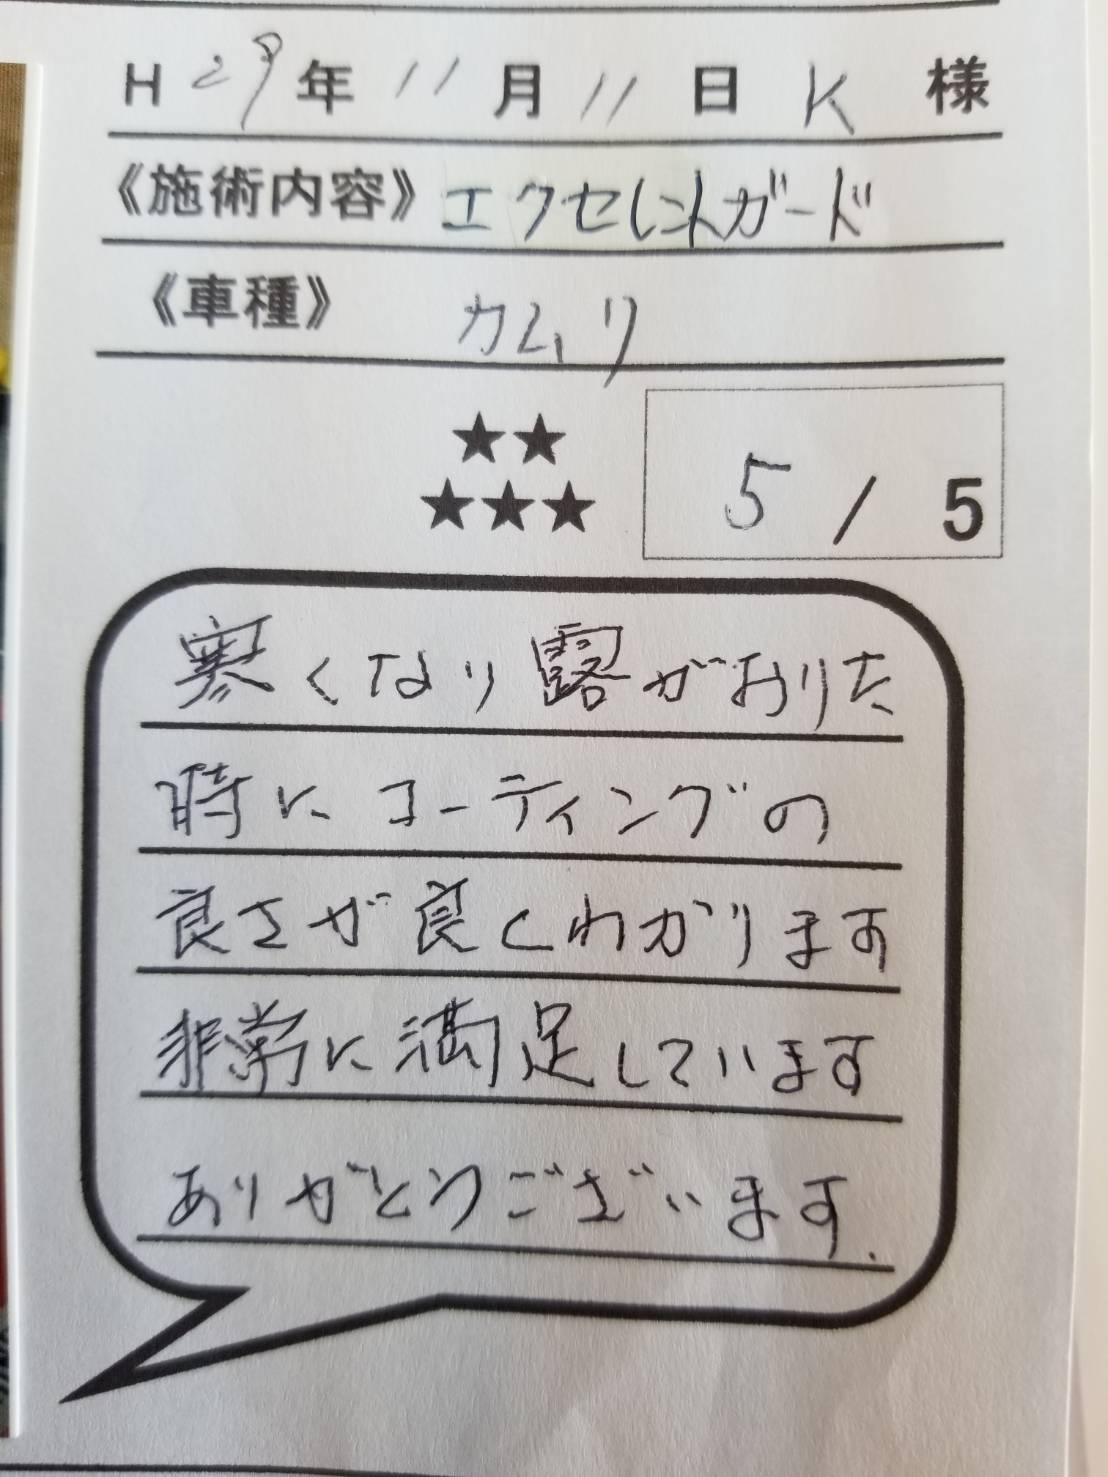 H 29 年 11 月 11 日 K 様
《施術内容》エクセレントガード
《車種》 カムリ
★★
★★★
5 / 5
寒くなり露がおりた
時にコーティングの
良さが良くわかります
非常に満足しています
ありがとうございます.